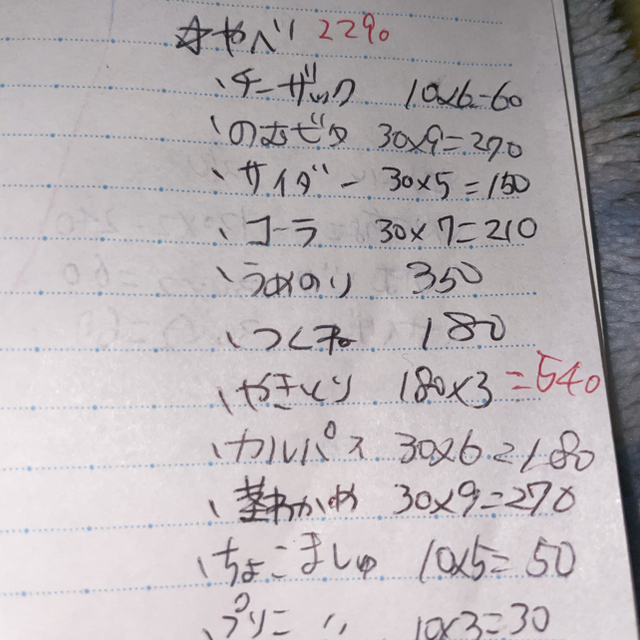 ☆やべ 2290
、チーザック 10×6=60
、のむゼリ 30×9=270
、サイダー 30×5=150
、コーラ 30×7=210
、うめのり 350
、つくね 180
、やきとり 180×3=540
、カルパス 30×6=180
、茎わかめ 30×9=270
、ちょこましゅ 10×5=50
、プリン〃 10×3=30